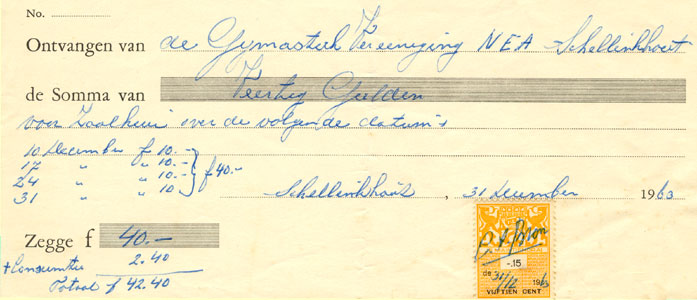 No.
Ontvangen van de Gymastiek Vereeniging NEA - Schellinkhout
de Somma van Veertig Gulden
voor Zaalhuur over de volgende datum's
10 December f 10.-
17 " " 10.-
24 " " 10.- f 40.-
31 " " 10
Schellinkhout, 31 december 1963
Zegge f 40.-
+ Consumptie 2.40
Totaal f 42.40
-.15
de 31/12 1963
VIJFTIEN CENT